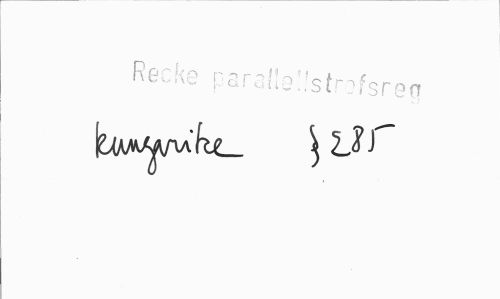 Recke parallellstrofsreg
kungarike § 285